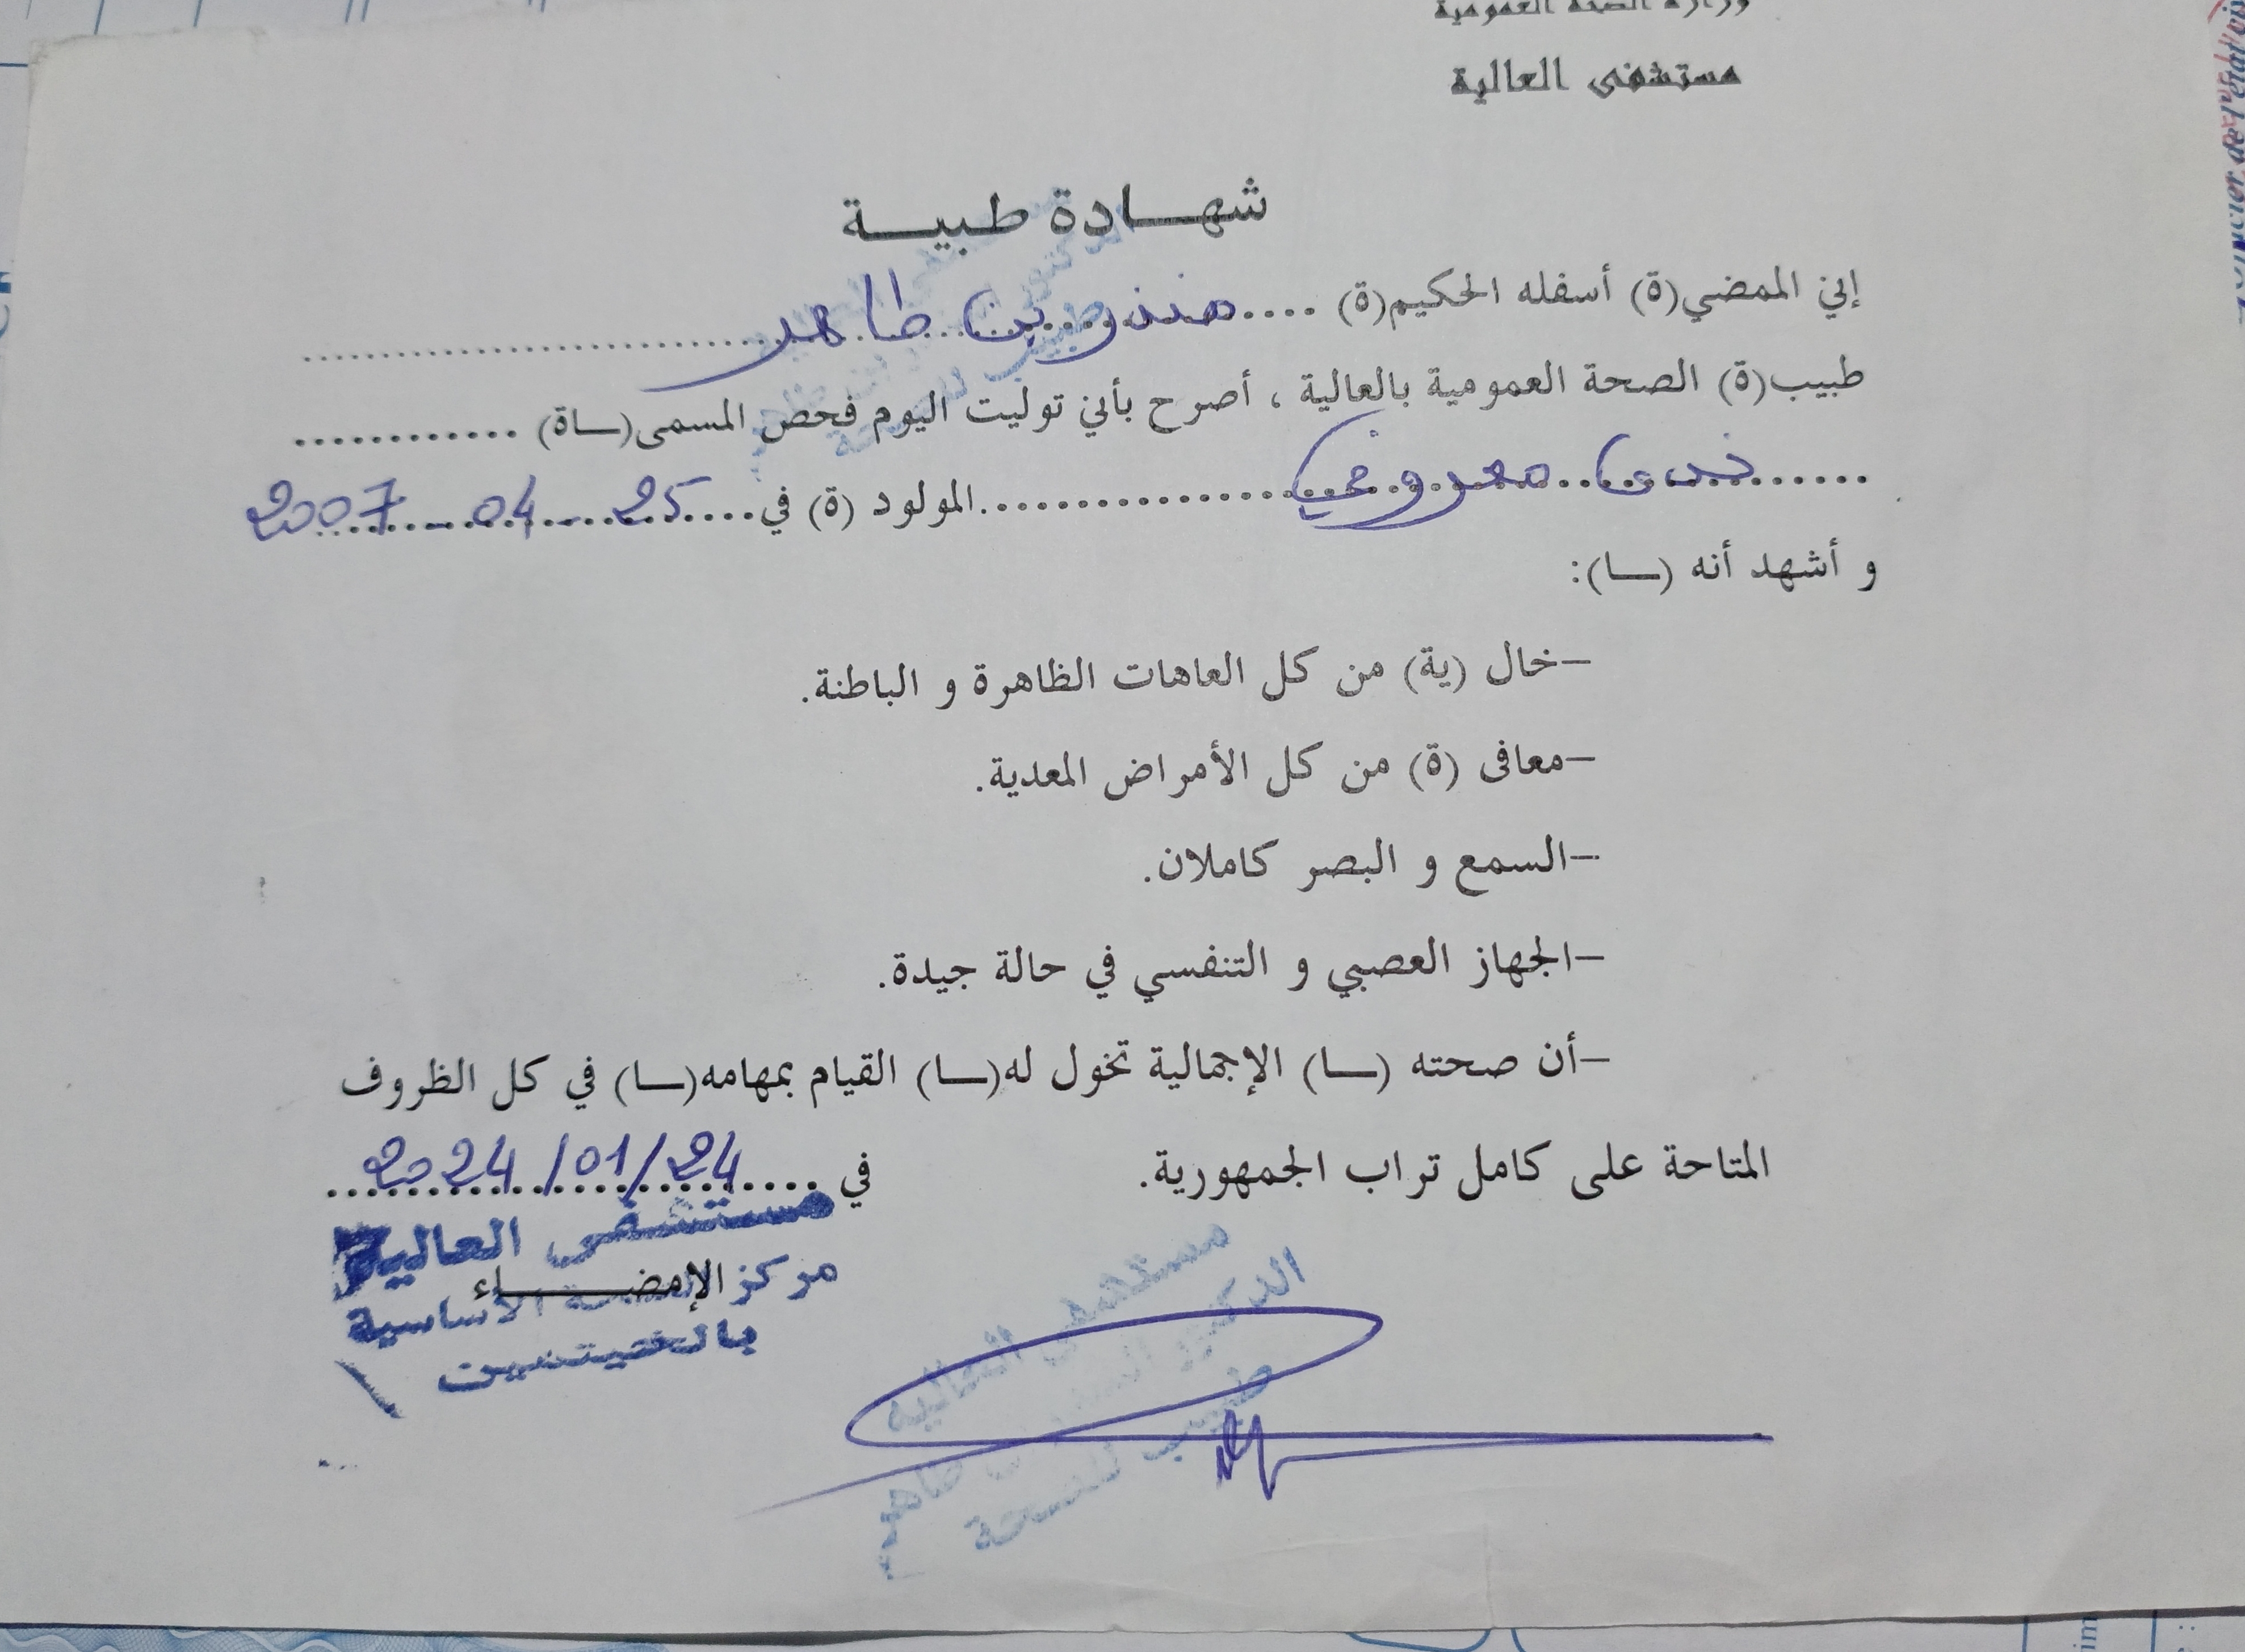 وزارة الصحة العمومية
مستشفى العالية
شهـــادة طبيـــة
إني الممضي(ة) أسفله الحكيم(ة) .... منذر بن طاهر ....
طبيب(ة) الصحة العمومية بالعالية ، أصرح بأني توليت اليوم فحص المسمى(ـاة) ............
...... ندى معروفي ................ المولود (ة) في .... 25 - 04 - 2007
و أشهد أنه (ــا):
–خال (ية) من كل العاهات الظاهرة و الباطنة.
–معافى (ة) من كل الأمراض المعدية.
–السمع و البصر كاملان.
–الجهاز العصبي و التنفسي في حالة جيدة.
–أن صحته (ــا) الإجمالية تخول له(ــا) القيام بمهامه(ــا) في كل الظروف
المتاحة على كامل تراب الجمهورية. في .... 2024/01/24
مستشفى العالية
الإمضـــــاء
مركز الصحة الأساسية
مستشفى العالية
الدكتور المنذر بن طاهر
طبيب للصحة